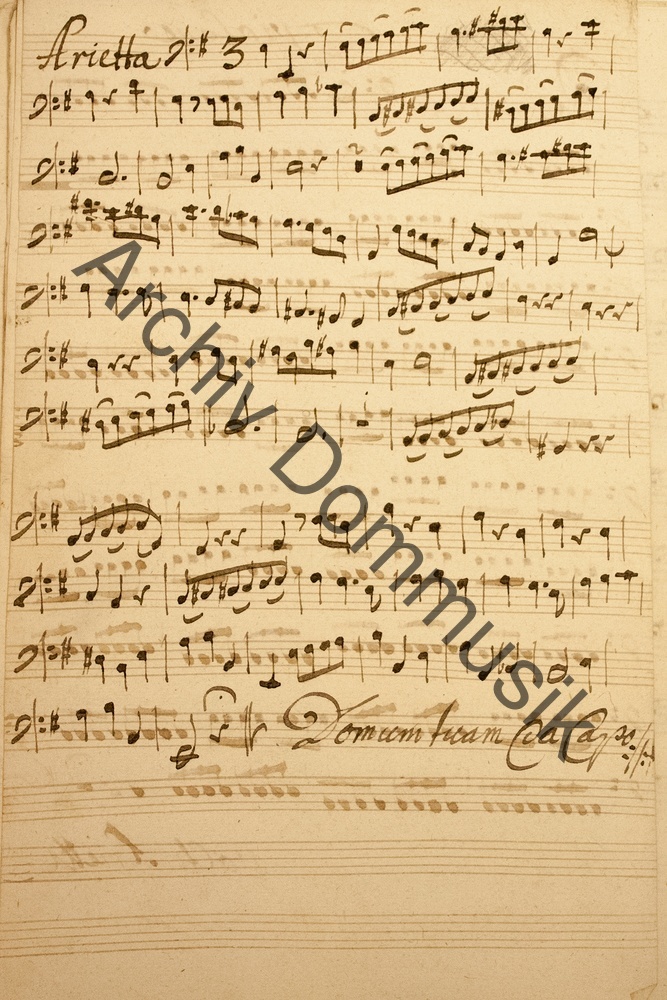 Arietta 3
Archiv Dommusik
Domum tuam Da Capo